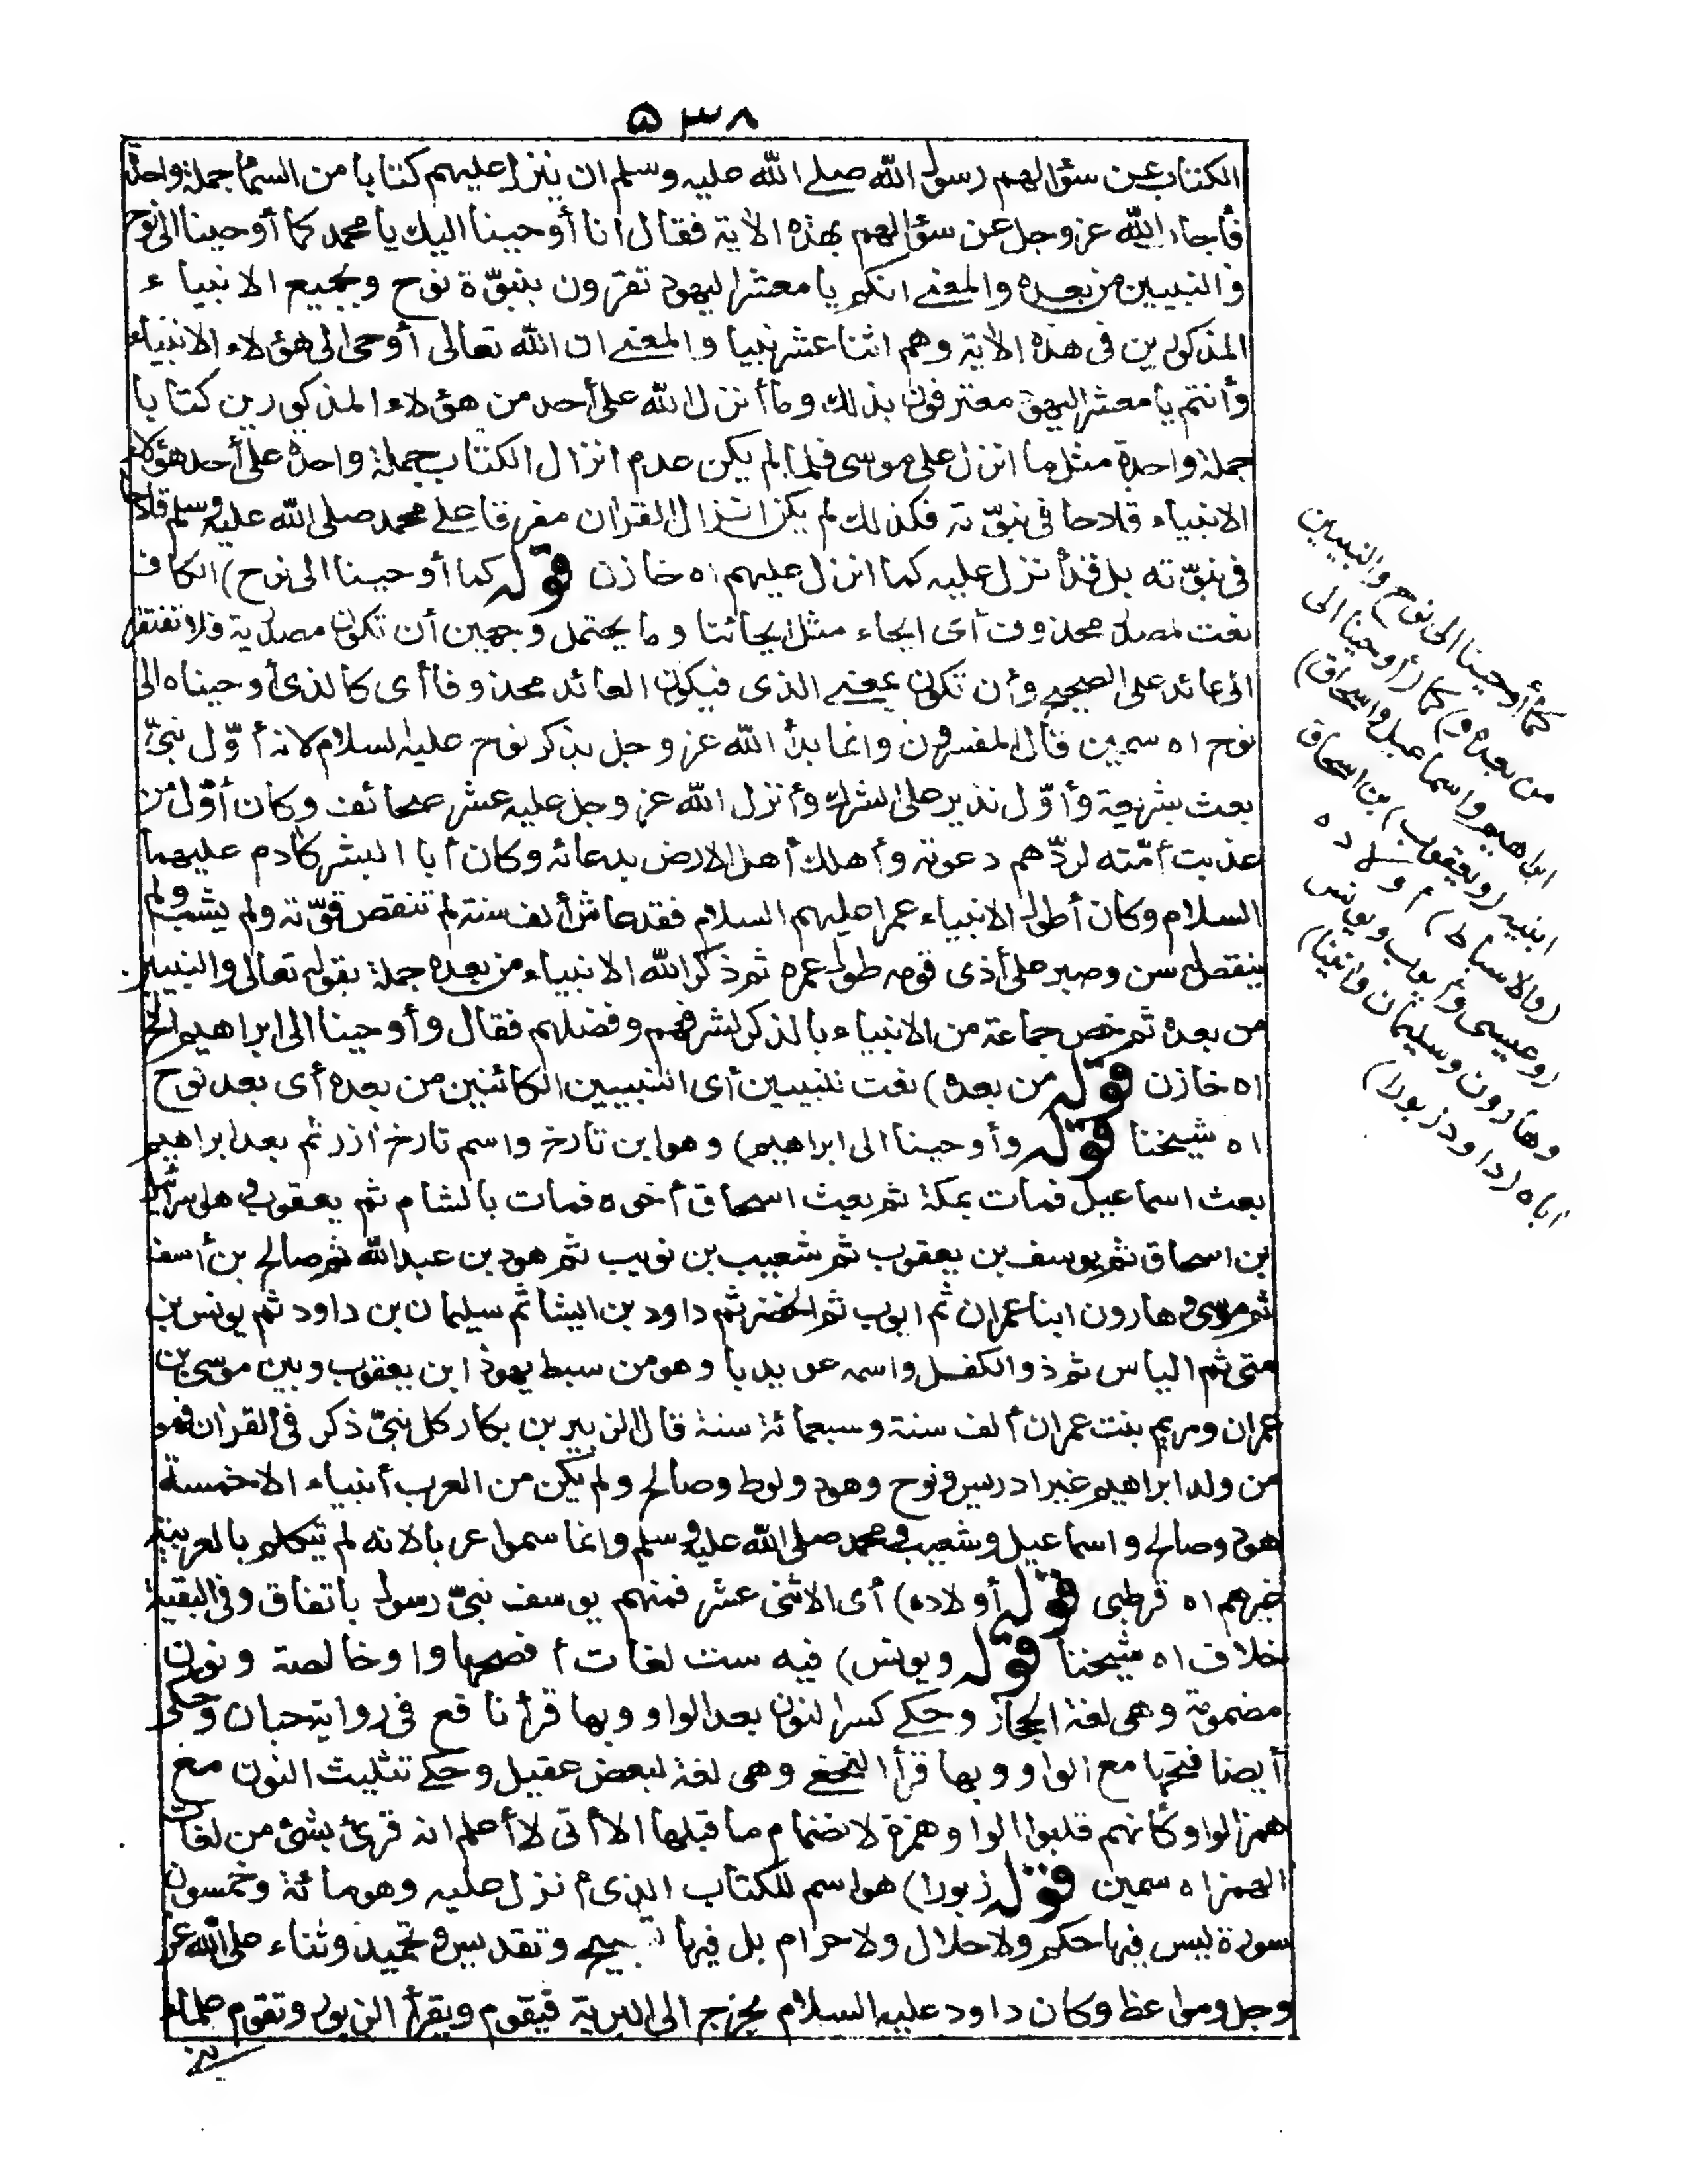 ٥٣٨
الكتاب عن سؤالهم رسول الله صلى الله عليه وسلم ان ينزل عليهم كتابا من السماء جملة واحدة
فأجاب الله عز وجل عن سؤالهم بهذه الآية فقال انا أوحينا اليك يا محمد كما أوحينا الى نوح
والنبيين من بعده والمعنى انكم يا معشر اليهود تقرون بنبوّة نوح وبجميع الانبياء
المذكورين فى هذه الآية وهم اثنا عشر نبيا والمعنى ان الله تعالى أوحى الى هؤلاء الانبياء
وأنتم يا معشر اليهود معترفون بذلك وما أنزل الله على أحد من هؤلاء المذكورين كتابا
جملة واحدة مثل ما انزل على موسى فلما لم يكن عدم انزال الكتاب جملة واحدة على أحد هؤلاء
الانبياء قادحا فى نبوّته فكذلك لم يكن انزال القرآن مفرقا على محمد صلى الله عليه وسلم قادحا
فى نبوّته بل قد أنزل عليه كما انزل عليهم اه خازن قوله كما أوحينا الى نوح) الكاف
نعت لمصدر محذوف أى ايحاء مثل ايحائنا وما يحتمل وجهين أن تكون مصدرية فلا تفتقر
الى عائد على الصحيح وأن تكون بمعنى الذى فيكون العائد محذوفا أى كالذى أوحيناه الى
نوح اه سمين قال المفسرون وانما بدأ الله عز وجل بذكر نوح عليه السلام لانه أوّل نبىّ
بعث بشريعة وأوّل نذير على الشرك وأنزل الله عز وجل عليه عشر صحائف وكان أوّل من
عذبت أمّته لردّهم دعوته وأهلك أهل الارض بدعائه وكان أبا البشر كآدم عليهما
السلام وكان أطول الانبياء عمرا عليهم السلام فقد عاش ألف سنة لم تنقص قوّته ولم يشب ولم
ينقص له سن وصبر على أذى قومه طول عمره ثم ذكر الله الانبياء من بعده جملة بقوله تعالى والنبيين
من بعده ثم خص جماعة من الانبياء بالذكر لشرفهم وفضلهم فقال وأوحينا الى ابراهيم الخ
اه خازن قوله من بعده) نعت للنبيين أى النبيين الكائنين من بعده أى بعد نوح
اه شيخنا قوله وأوحينا الى ابراهيم) وهو ابن تارخ واسم تارخ آزر ثم بعد ابراهيم
بعث اسماعيل فمات بمكة ثم بعث اسحاق أخوه فمات بالشام ثم يعقوب وهو اسرائيل
بن اسحاق ثم يوسف بن يعقوب ثم شعيب بن نويب ثم هود بن عبد الله ثم صالح بن أسف
ثم موسى وهارون ابنا عمران ثم ايوب ثم الخضر ثم داود بن ايشا ثم سليمان بن داود ثم يونس بن
متى ثم الياس ثم ذو الكفل واسمه عويديا وهو من سبط يهوذا بن يعقوب وبين موسى بن
عمران ومريم بنت عمران ألف سنة وسبعمائة سنة قال الزبير بن بكار كل نبىّ ذكر فى القرآن فهو
من ولد ابراهيم غير ادريس ونوح وهود ولوط وصالح ولم يكن من العرب أنبياء الا خمسة
هود وصالح واسماعيل وشعيب ومحمد صلى الله عليه وسلم وانما سموا عربا لانه لم يتكلم بالعربية
غيرهم اه قرطبى قوله أولاده) أى الاثنى عشر فمنهم يوسف نبىّ رسول باتفاق وفى البقية
خلاف اه شيخنا قوله ويونس) فيه ست لغات أفصحها واو خالصة ونون
مضمومة وهى لغة الحجاز وحكى كسر النون بعد الواو وبها قرأ نافع فى رواية حبان وحكى
أيضا فتحها مع الواو وبها قرأ النخعى وهى لغة لبعض عقيل وحكى تثليث النون مع
همز الواو كأنهم قلبوا الواو همزة لانضمام ما قبلها الا أنى لا أعلم انه قرئ بشئ من لغات
الهمز اه سمين قوله زبورا) هو اسم للكتاب الذى أنزل عليه وهو مائة وخمسون
سورة ليس فيها حكم ولا حلال ولا حرام بل فيها تسبيح وتقديس وتحميد وثناء على الله عز
وجل ومواعظ وكان داود عليه السلام يخرج الى البرية فيقوم ويقرأ الزبور وتقوم علماء
كما أوحينا الى نوح والنبيين
من بعده و) كما (أوحينا الى
ابراهيم واسماعيل واسحاق)
ابنيه (ويعقوب) بن اسحاق
(والاسباط) أولاده
(وعيسى وأيوب ويونس
وهارون وسليمان وآتينا)
أباه (داود زبورا)